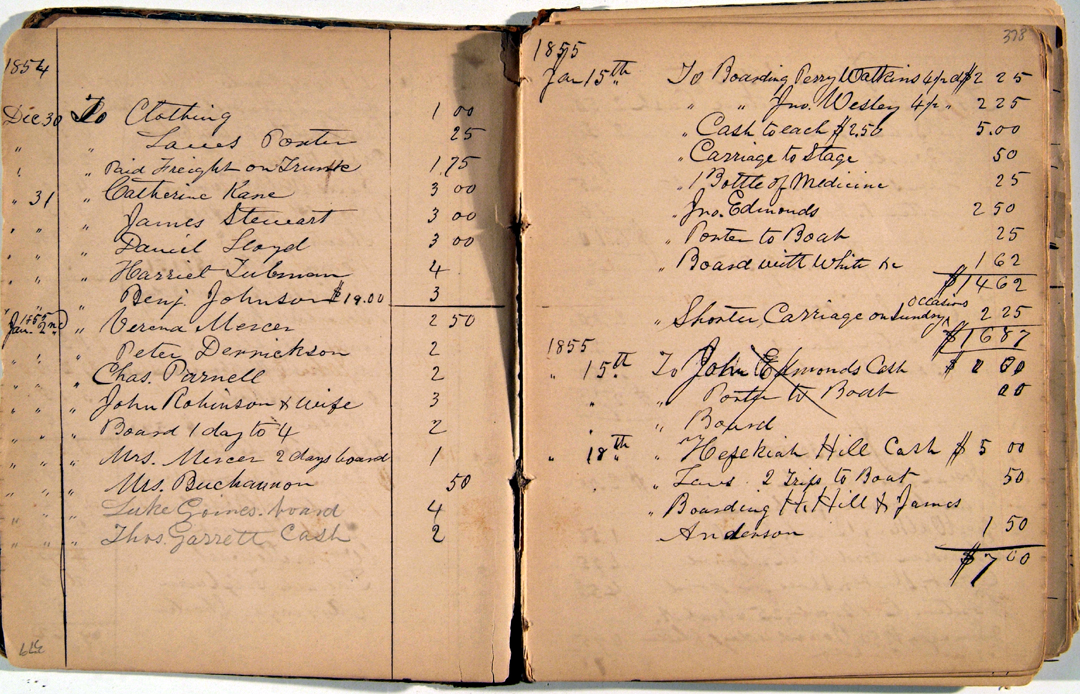 1854
Dec 30 To Clothing 1 00
" " Laws Porter 25
" " Paid Freight on Trunk 1.75
" 31 " Catherine Kane 3 00
" " " James Stewart 3 00
" " " Daniel Lloyd 3 00
" " " Harriet Tubman 4
" " " Benj. Johnson $19.00 3
1855
Jan. 2nd " Verena Mercer 2 50
" " " Peter Derrickson 2
" " " Chas. Parnell 2
" " " John Robinson & wife 3
" " " Board 1 day to 4 2
" " " Mrs. Mercer 2 days board 1
" " " Mrs. Buchannon 50
" " " Luke Goines board 4
" " " Thos. Garrett Cash 2
378
1855
Jan 15th To Boarding Perry Watkins 4/pd $2 25
" " Jno. Wesley 4/ " 2 25
" Cash to each $2.50 5.00
" Carriage to Stage 50
" 1 Bottle of Medicine 25
" Jno. Edmonds 2 50
" Porter to Boat 25
" Board with White 1 62
$14 62
Occasions
" Shorter Carriage on Sundry 2 25
$16 87
1855
" 15th To John Edmonds Cash $
" " Porter to Boat
" Board
" 18th " Hezekiah Hill Cash $5 00
" Laws 2 Trips to Boat 50
" Boarding H. Hill & James
Anderson 1 50
$7 00